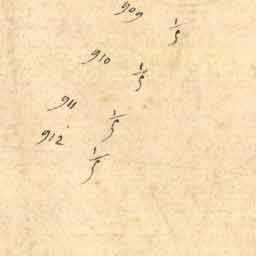 909
1/5
910
1/5
911
1/5
912
1/5